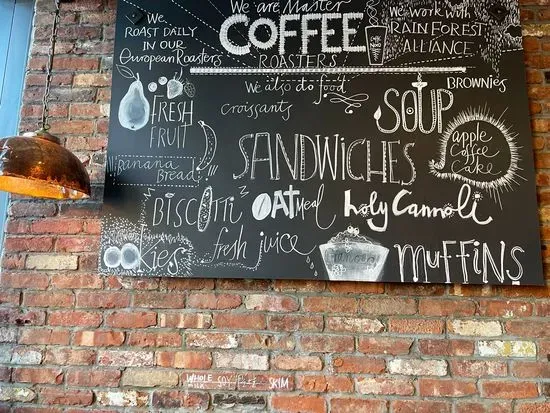 We are Master
COFFEE
ROASTERS
We
ROAST DAILY
IN OUR
European Roasters
We work with
RAIN FOREST
ALLIANCE
We also do food
croissants
BROWNIES
FRESH
FRUIT
SOUP
apple
Coffee
Cake
SANDWICHES
Banana
Bread
BISCOTTI
OATMeal
holy Cannoli
Cookies
fresh juice
MUFFINS
WHOLE
MILK
SOY
SKIM